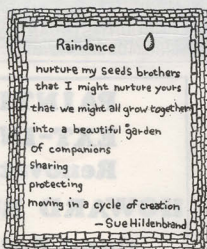 Raindance
nurture my seeds brothers
that I might nurture yours
that we might all grow together
into a beautiful garden
of companions
sharing
protecting
moving in a cycle of creation
— Sue Hildenbrand